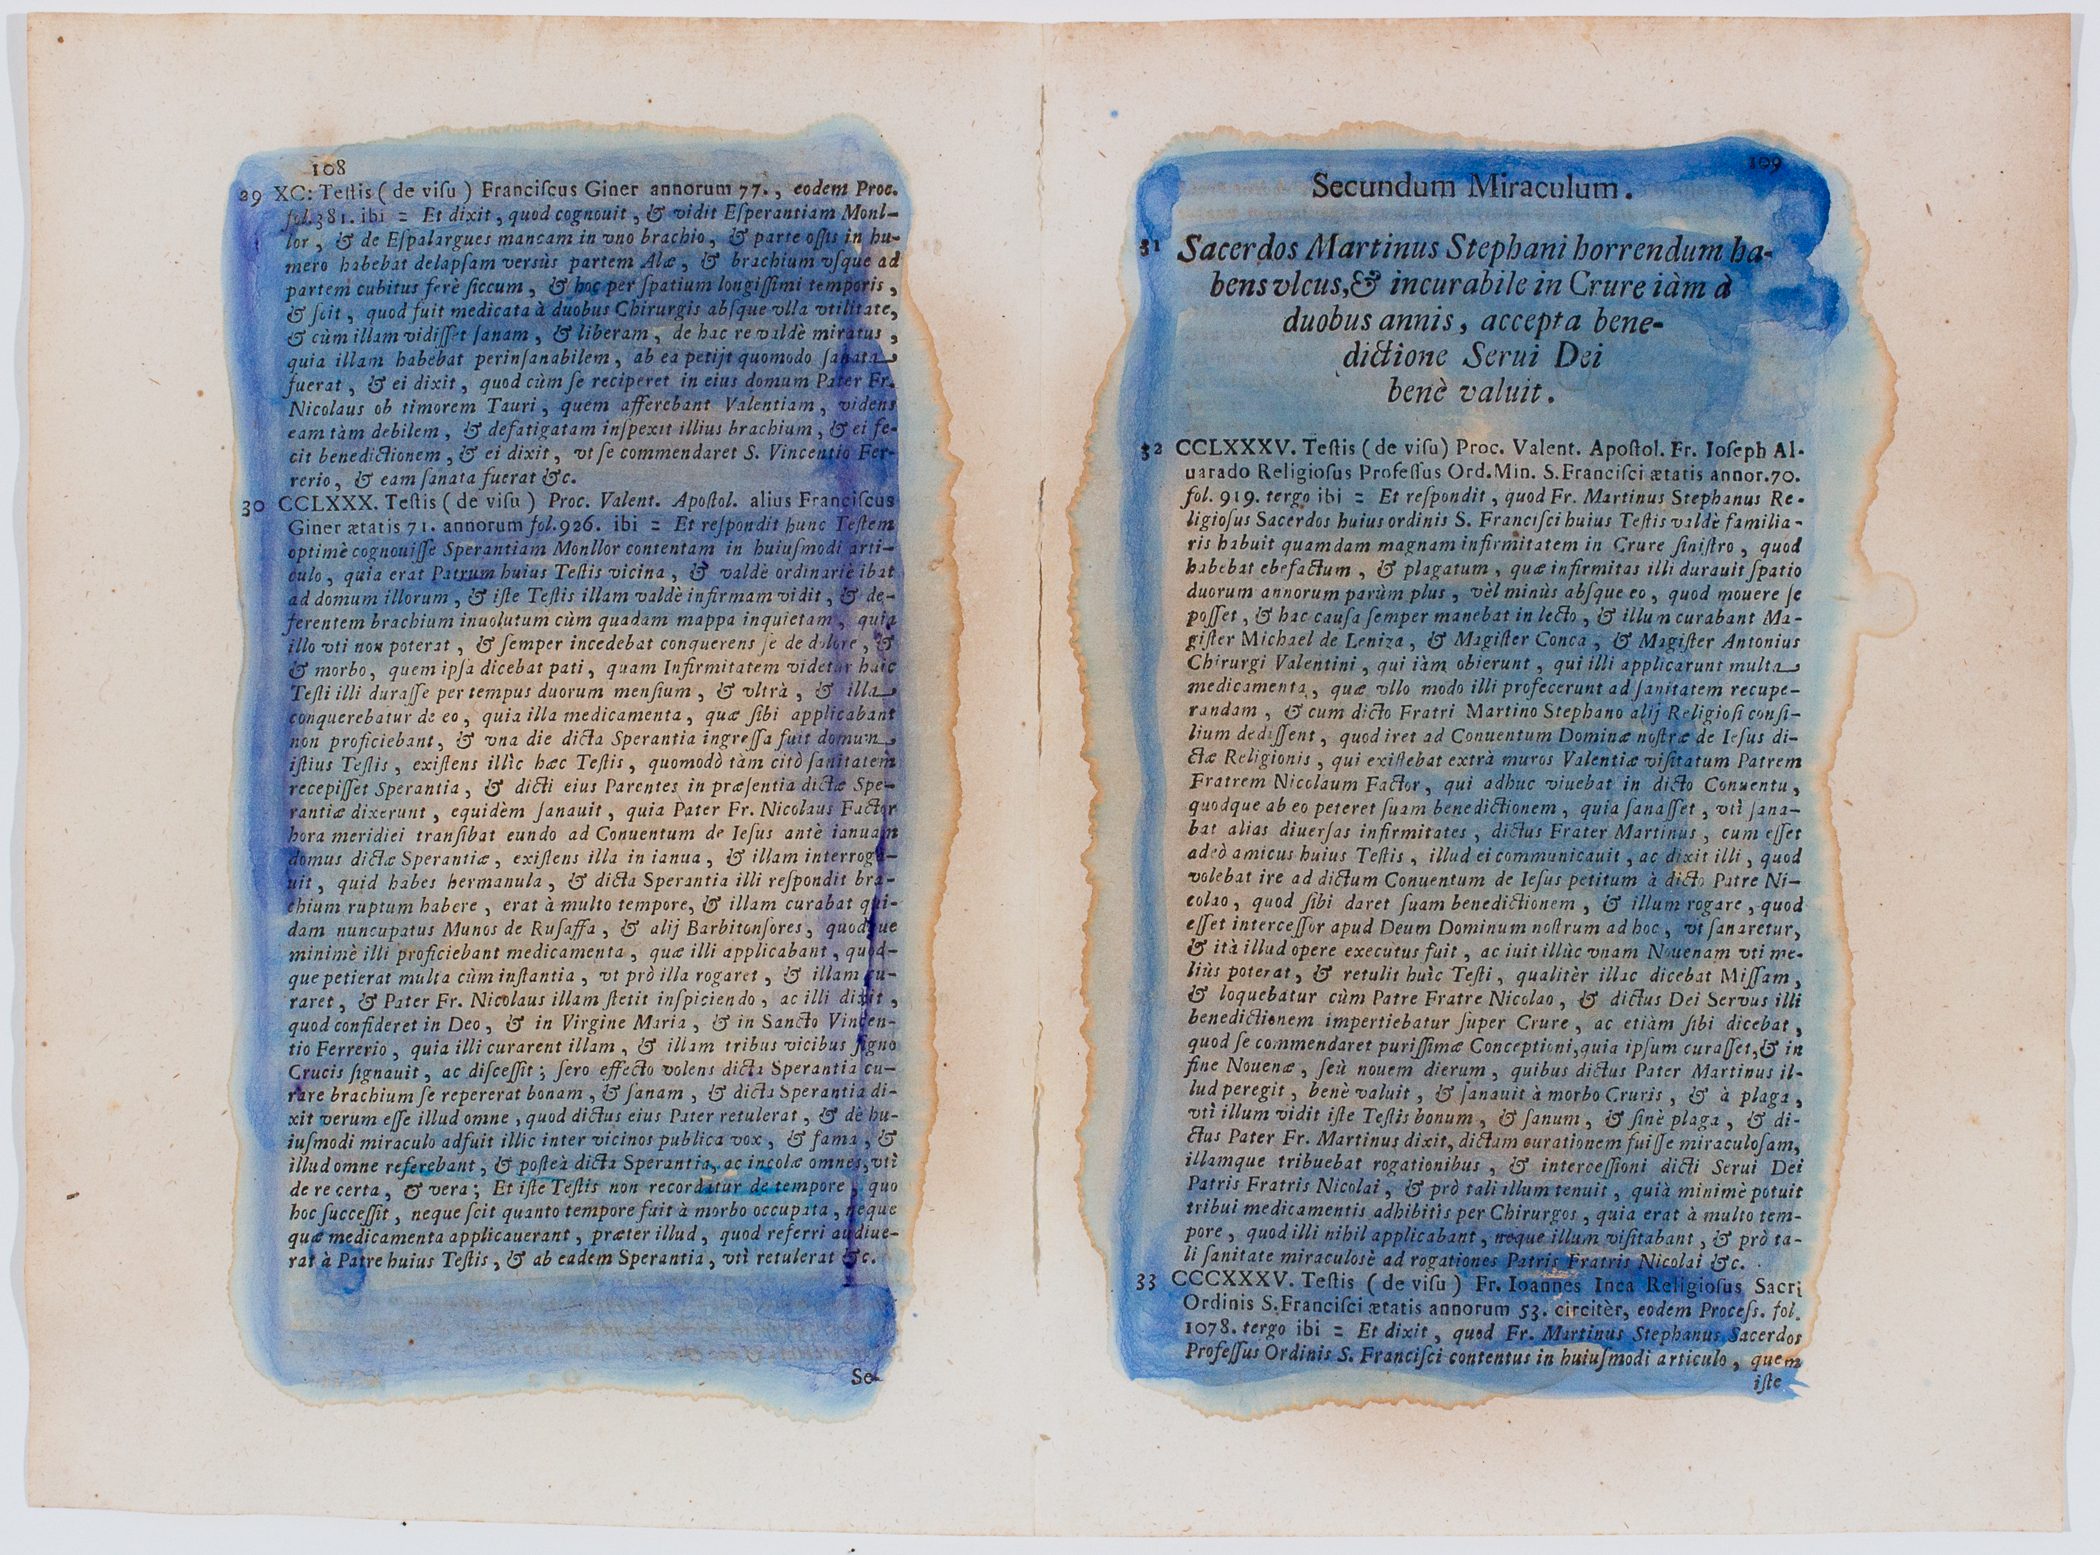 108
29 XC: Teſtis ( de viſu ) Franciſcus Giner annorum 77. , eodem Proc.
fol. 381. ibi = Et dixit , quod cognouit , & vidit Eſperantiam Monl-
lor , & de Eſpalargues mancam in vno brachio , & parte oſſis in hu-
mero habebat delapſam versùs partem Alæ , & brachium vſque ad
partem cubitus ferè ſiccum , & hoc per ſpatium longiſſimi temporis ,
& ſcit , quod fuit medicata à duobus Chirurgis abſque vlla vtilitate,
& cùm illam vidiſſet ſanam , & liberam , de hac re valdè miratus ,
quia illam habebat perinſanabilem , ab ea petijt quomodo ſanata
fuerat , & ei dixit , quod cùm ſe reciperet in eius domum Pater Fr.
Nicolaus ob timorem Tauri , quem afferebant Valentiam , videns
eam tàm debilem , & defatigatam inſpexit illius brachium , & ei fe-
cit benedictionem , & ei dixit , vt ſe commendaret S. Vincentio Fer-
rerio , & eam ſanata fuerat &c.
30 CCLXXX. Teſtis ( de viſu ) Proc. Valent. Apoſtol. alius Franciſcus
Giner ætatis 71. annorum fol. 926. ibi = Et reſpondit hunc Teſtem
optimè cognouiſſe Sperantiam Monllor contentam in huiuſmodi arti-
culo , quia erat Patrum huius Teſtis vicina , & valdè ordinariè ibat
ad domum illorum , & iſte Teſtis illam valdè infirmam vidit , & de-
ferentem brachium inuolutum cùm quadam mappa inquietam , quia
illo vti non poterat , & ſemper incedebat conquerens ſe de dolore , &
& morbo , quem ipſa dicebat pati , quam Infirmitatem videtur huic
Teſti illi duraſſe per tempus duorum menſium , & vltrà , & illa
conquerebatur de eo , quia illa medicamenta , quæ ſibi applicabant
non proficiebant , & vna die dicta Sperantia ingreſſa fuit domum
iſtius Teſtis , exiſtens illìc hæc Teſtis , quomodò tàm citò ſanitatem
recepiſſet Sperantia , & dicti eius Parentes in præſentia dictæ Spe-
rantiæ dixerunt , equidèm ſanauit , quia Pater Fr. Nicolaus Factor
hora meridiei tranſibat eundo ad Conuentum de Ieſus antè ianuam
domus dictæ Sperantiæ , exiſtens illa in ianua , & illam interroga-
uit , quid habes hermanula , & dicta Sperantia illi reſpondit bra-
chium ruptum habere , erat à multo tempore, & illam curabat qui-
dam nuncupatus Munos de Ruſaffa , & alij Barbitonſores , quodque
minimè illi proficiebant medicamenta , quæ illi applicabant , quod-
que petierat multa cùm inſtantia , vt prò illa rogaret , & illam cu-
raret , & Pater Fr. Nicolaus illam ſtetit inſpiciendo , ac illi dixit ,
quod confideret in Deo , & in Virgine Maria , & in Sancto Vincen-
tio Ferrerio , quia illi curarent illam , & illam tribus vicibus ſigno
Crucis ſignauit , ac diſceſſit ; ſero effecto volens dicta Sperantia cu-
rare brachium ſe repererat bonam , & ſanam , & dicta Sperantia di-
xit verum eſſe illud omne , quod dictus eius Pater retulerat , & dè hu-
iuſmodi miraculo adfuit illic inter vicinos publica vox , & fama , &
illud omne referebant , & poſteà dicta Sperantia, ac incolæ omnes, vtì
de re certa , & vera ; Et iſte Teſtis non recordatur de tempore , quo
hoc ſucceſſit , neque ſcit quanto tempore fuit à morbo occupata , neque
quæ medicamenta applicauerant , præter illud , quod referri audiue-
rat à Patre huius Teſtis , & ab eadem Sperantia , vtì retulerat &c.
Se-
109
Secundum Miraculum .
31 Sacerdos Martinus Stephani horrendum ha-
bens vlcus, & incurabile in Crure iàm à
duobus annis , accepta bene-
dictione Serui Dei
benè valuit .
32 CCLXXXV. Teſtis ( de viſu ) Proc. Valent. Apoſtol. Fr. Ioſeph Al-
uarado Religioſus Profeſſus Ord. Min. S. Franciſci ætatis annor. 70.
fol. 919. tergo ibi = Et reſpondit , quod Fr. Martinus Stephanus Re-
ligioſus Sacerdos huius ordinis S. Franciſci huius Teſtis valdè familia-
ris habuit quamdam magnam infirmitatem in Crure ſiniſtro , quod
habebat ebefactum , & plagatum , quæ infirmitas illi durauit ſpatio
duorum annorum parùm plus , vèl minùs abſque eo , quod mouere ſe
poſſet , & hac cauſa ſemper manebat in lecto , & illum curabant Ma-
giſter Michael de Leniza , & Magiſter Conca , & Magiſter Antonius
Chirurgi Valentini , qui iàm obierunt , qui illi applicarunt multa
medicamenta , quæ vllo modo illi profecerunt ad ſanitatem recupe-
randam , & cum dicto Fratri Martino Stephano alij Religioſi conſi-
lium dediſſent , quod iret ad Conuentum Dominæ noſtræ de Ieſus di-
ctæ Religionis , qui exiſtebat extrà muros Valentiæ viſitatum Patrem
Fratrem Nicolaum Factor , qui adhuc viuebat in dicto Conuentu ,
quodque ab eo peteret ſuam benedictionem , quia ſanaſſet , vtì ſana-
bat alias diuerſas infirmitates , dictus Frater Martinus , cum eſſet
adeò amicus huius Teſtis , illud ei communicauit , ac dixit illi , quod
volebat ire ad dictum Conuentum de Ieſus petitum à dicto Patre Ni-
colao , quod ſibi daret ſuam benedictionem , & illum rogare , quod
eſſet interceſſor apud Deum Dominum noſtrum ad hoc , vt ſanaretur,
& ità illud opere executus fuit , ac iuit illùc vnam Nouenam vti me-
liùs poterat , & retulit huìc Teſti , qualitèr illac dicebat Miſſam ,
& loquebatur cùm Patre Fratre Nicolao , & dictus Dei Servus illi
benedictionem impertiebatur ſuper Crure , ac etiàm ſibi dicebat ,
quod ſe commendaret puriſſimæ Conceptioni, quia ipſum curaſſet, & in
fine Nouenæ , ſeù nouem dierum , quibus dictus Pater Martinus il-
lud peregit , benè valuit , & ſanauit à morbo Cruris , & à plaga ,
vtì illum vidit iſte Teſtis bonum , & ſanum , & ſinè plaga , & di-
ctus Pater Fr. Martinus dixit, dictam curationem fuiſſe miraculoſam,
illamque tribuebat rogationibus , & interceſſioni dicti Serui Dei
Patris Fratris Nicolai , & prò tali illum tenuit , quià minimè potuit
tribui medicamentis adhibitìs per Chirurgos , quia erat à multo tem-
pore , quod illi nihil applicabant , neque illum viſitabant , & prò ta-
li ſanitate miraculosè ad rogationes Patris Fratris Nicolai &c.
33 CCCXXXV. Teſtis ( de viſu ) Fr. Ioannes Inca Religioſus Sacri
Ordinis S. Franciſci ætatis annorum 53. circitèr, eodem Proceſs. fol.
1078. tergo ibi = Et dixit , quod Fr. Martinus Stephanus Sacerdos
Profeſſus Ordinis S. Franciſci contentus in huiuſmodi articulo , quem
iſte